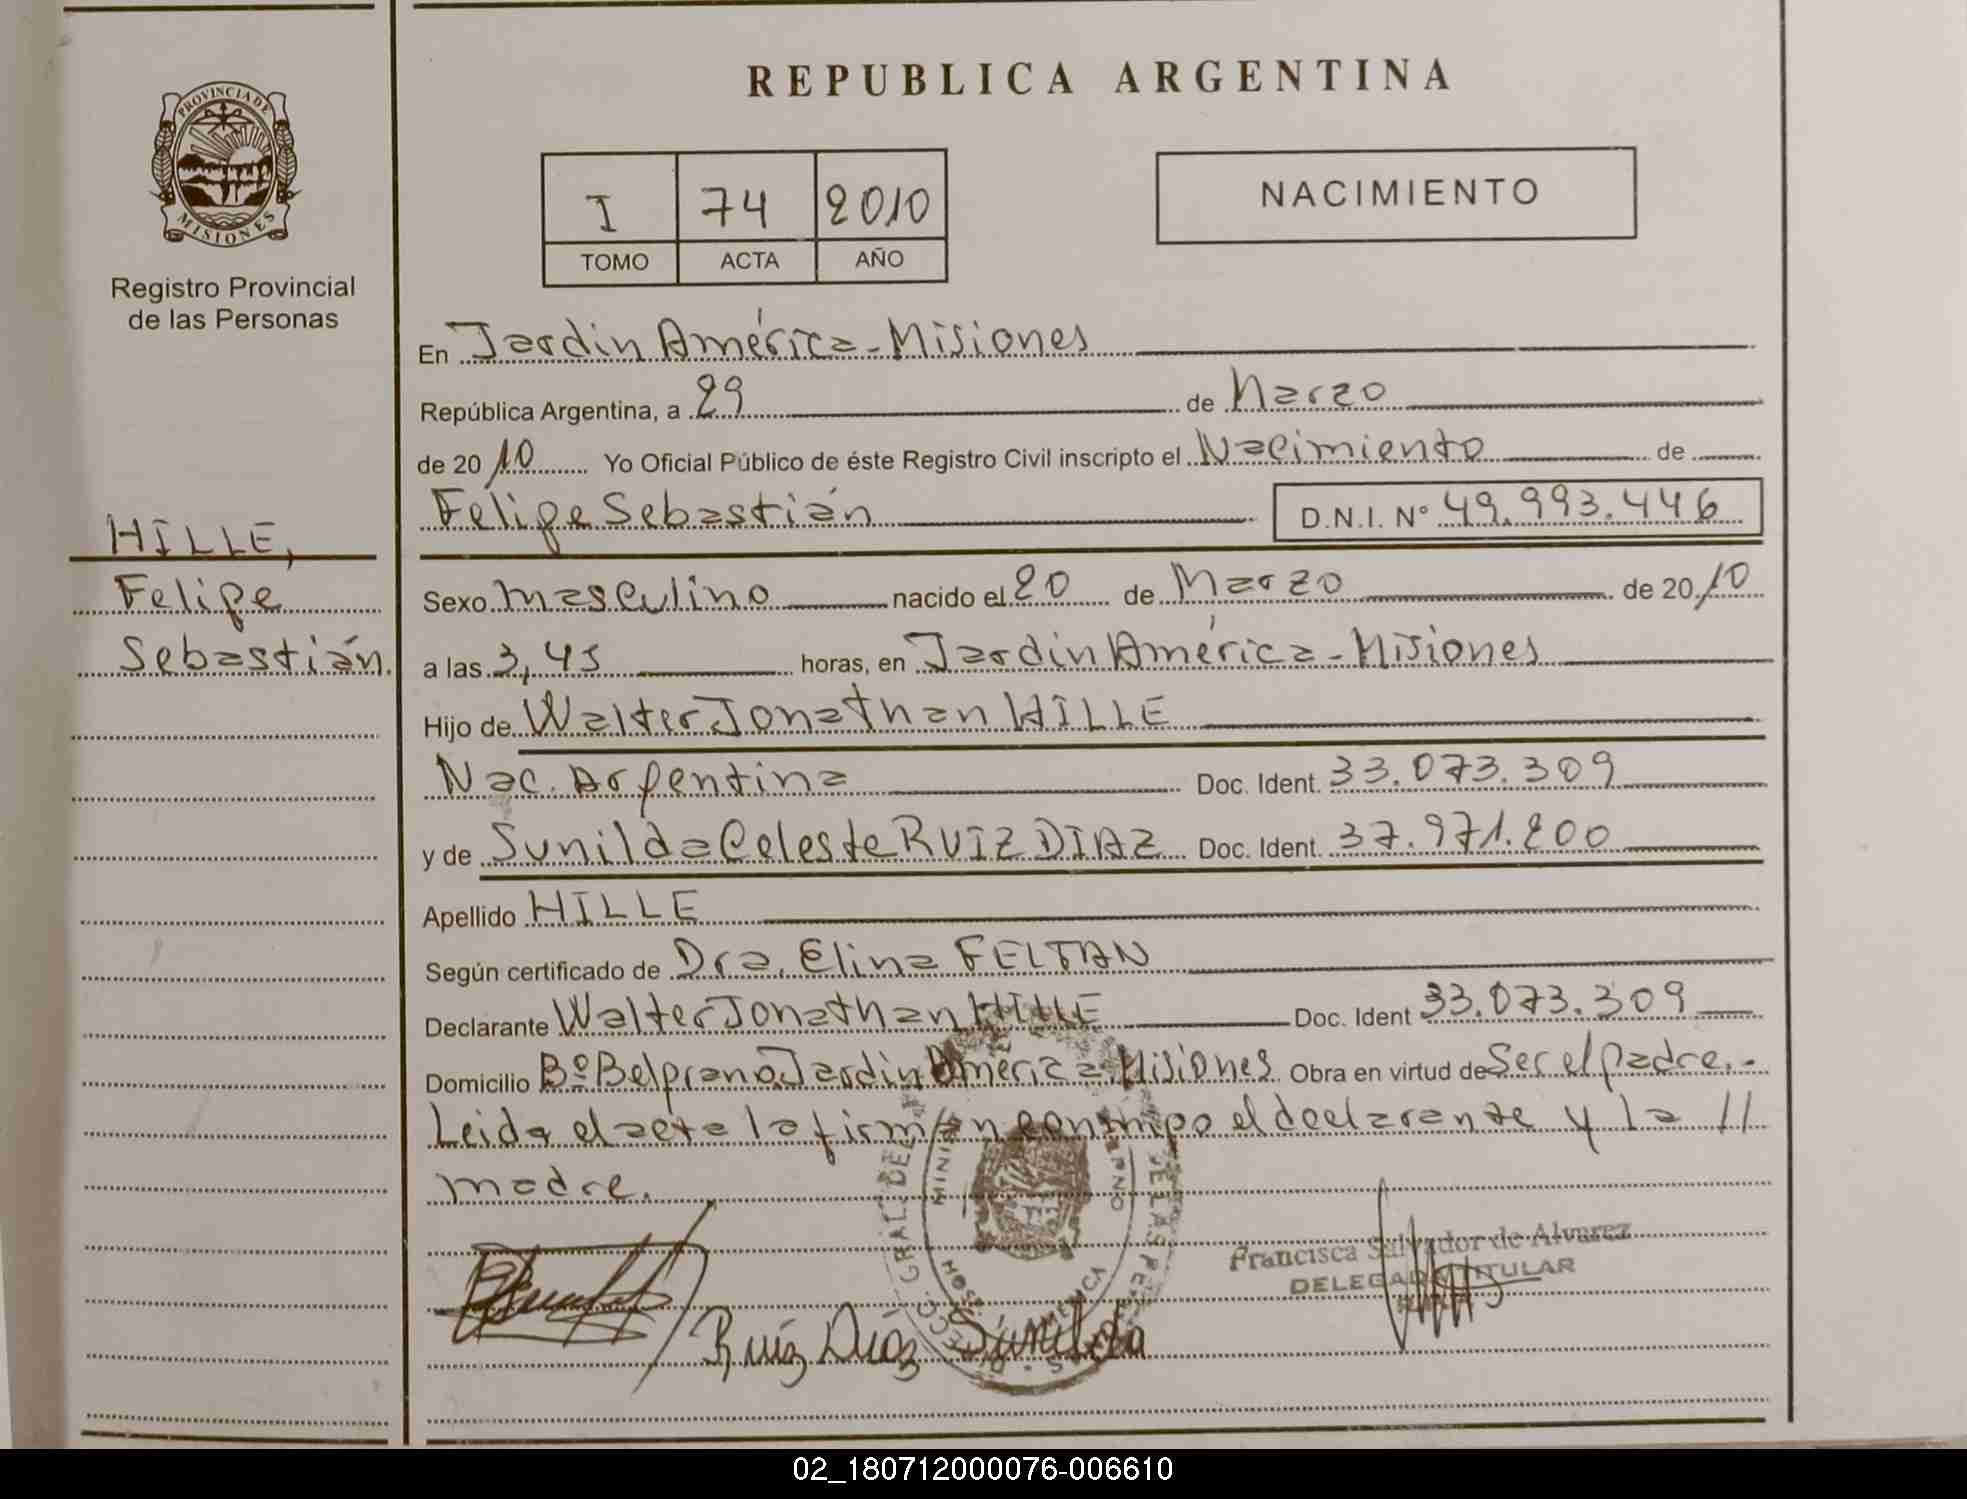 REPUBLICA ARGENTINA
PROVINCIA DE
MISIONES
Registro Provincial
de las Personas
I 74 2010
TOMO ACTA AÑO
NACIMIENTO
HILLE,
Felipe
Sebastián.
En Jardin América-Misiones
República Argentina, a 29 de Marzo
de 2010 Yo Oficial Público de éste Registro Civil inscripto el Nacimiento de
Felipe Sebastián D.N.I. Nº 49.993.446
Sexo masculino nacido el 20 de Marzo de 2010
a las 3,45 horas, en Jardin América-Misiones
Hijo de Walter Jonathan HILLE
Nac. Argentina Doc. Ident. 33.073.309
y de Sunilda Celeste RUIZ DIAZ Doc. Ident. 37.971.200
Apellido HILLE
Según certificado de Dra. Elina FELTAN
Declarante Walter Jonathan HILLE Doc. Ident 33.073.309
Domicilio Bº Belgrano Jardin América-Misiones Obra en virtud de Ser el padre.-
Leida el acta la firman conmigo el declarante y la //
madre.
Francisca Salvador de Alvarez
DELEGADA TITULAR
Ruiz Diaz Sunilda
02_180712000076-006610